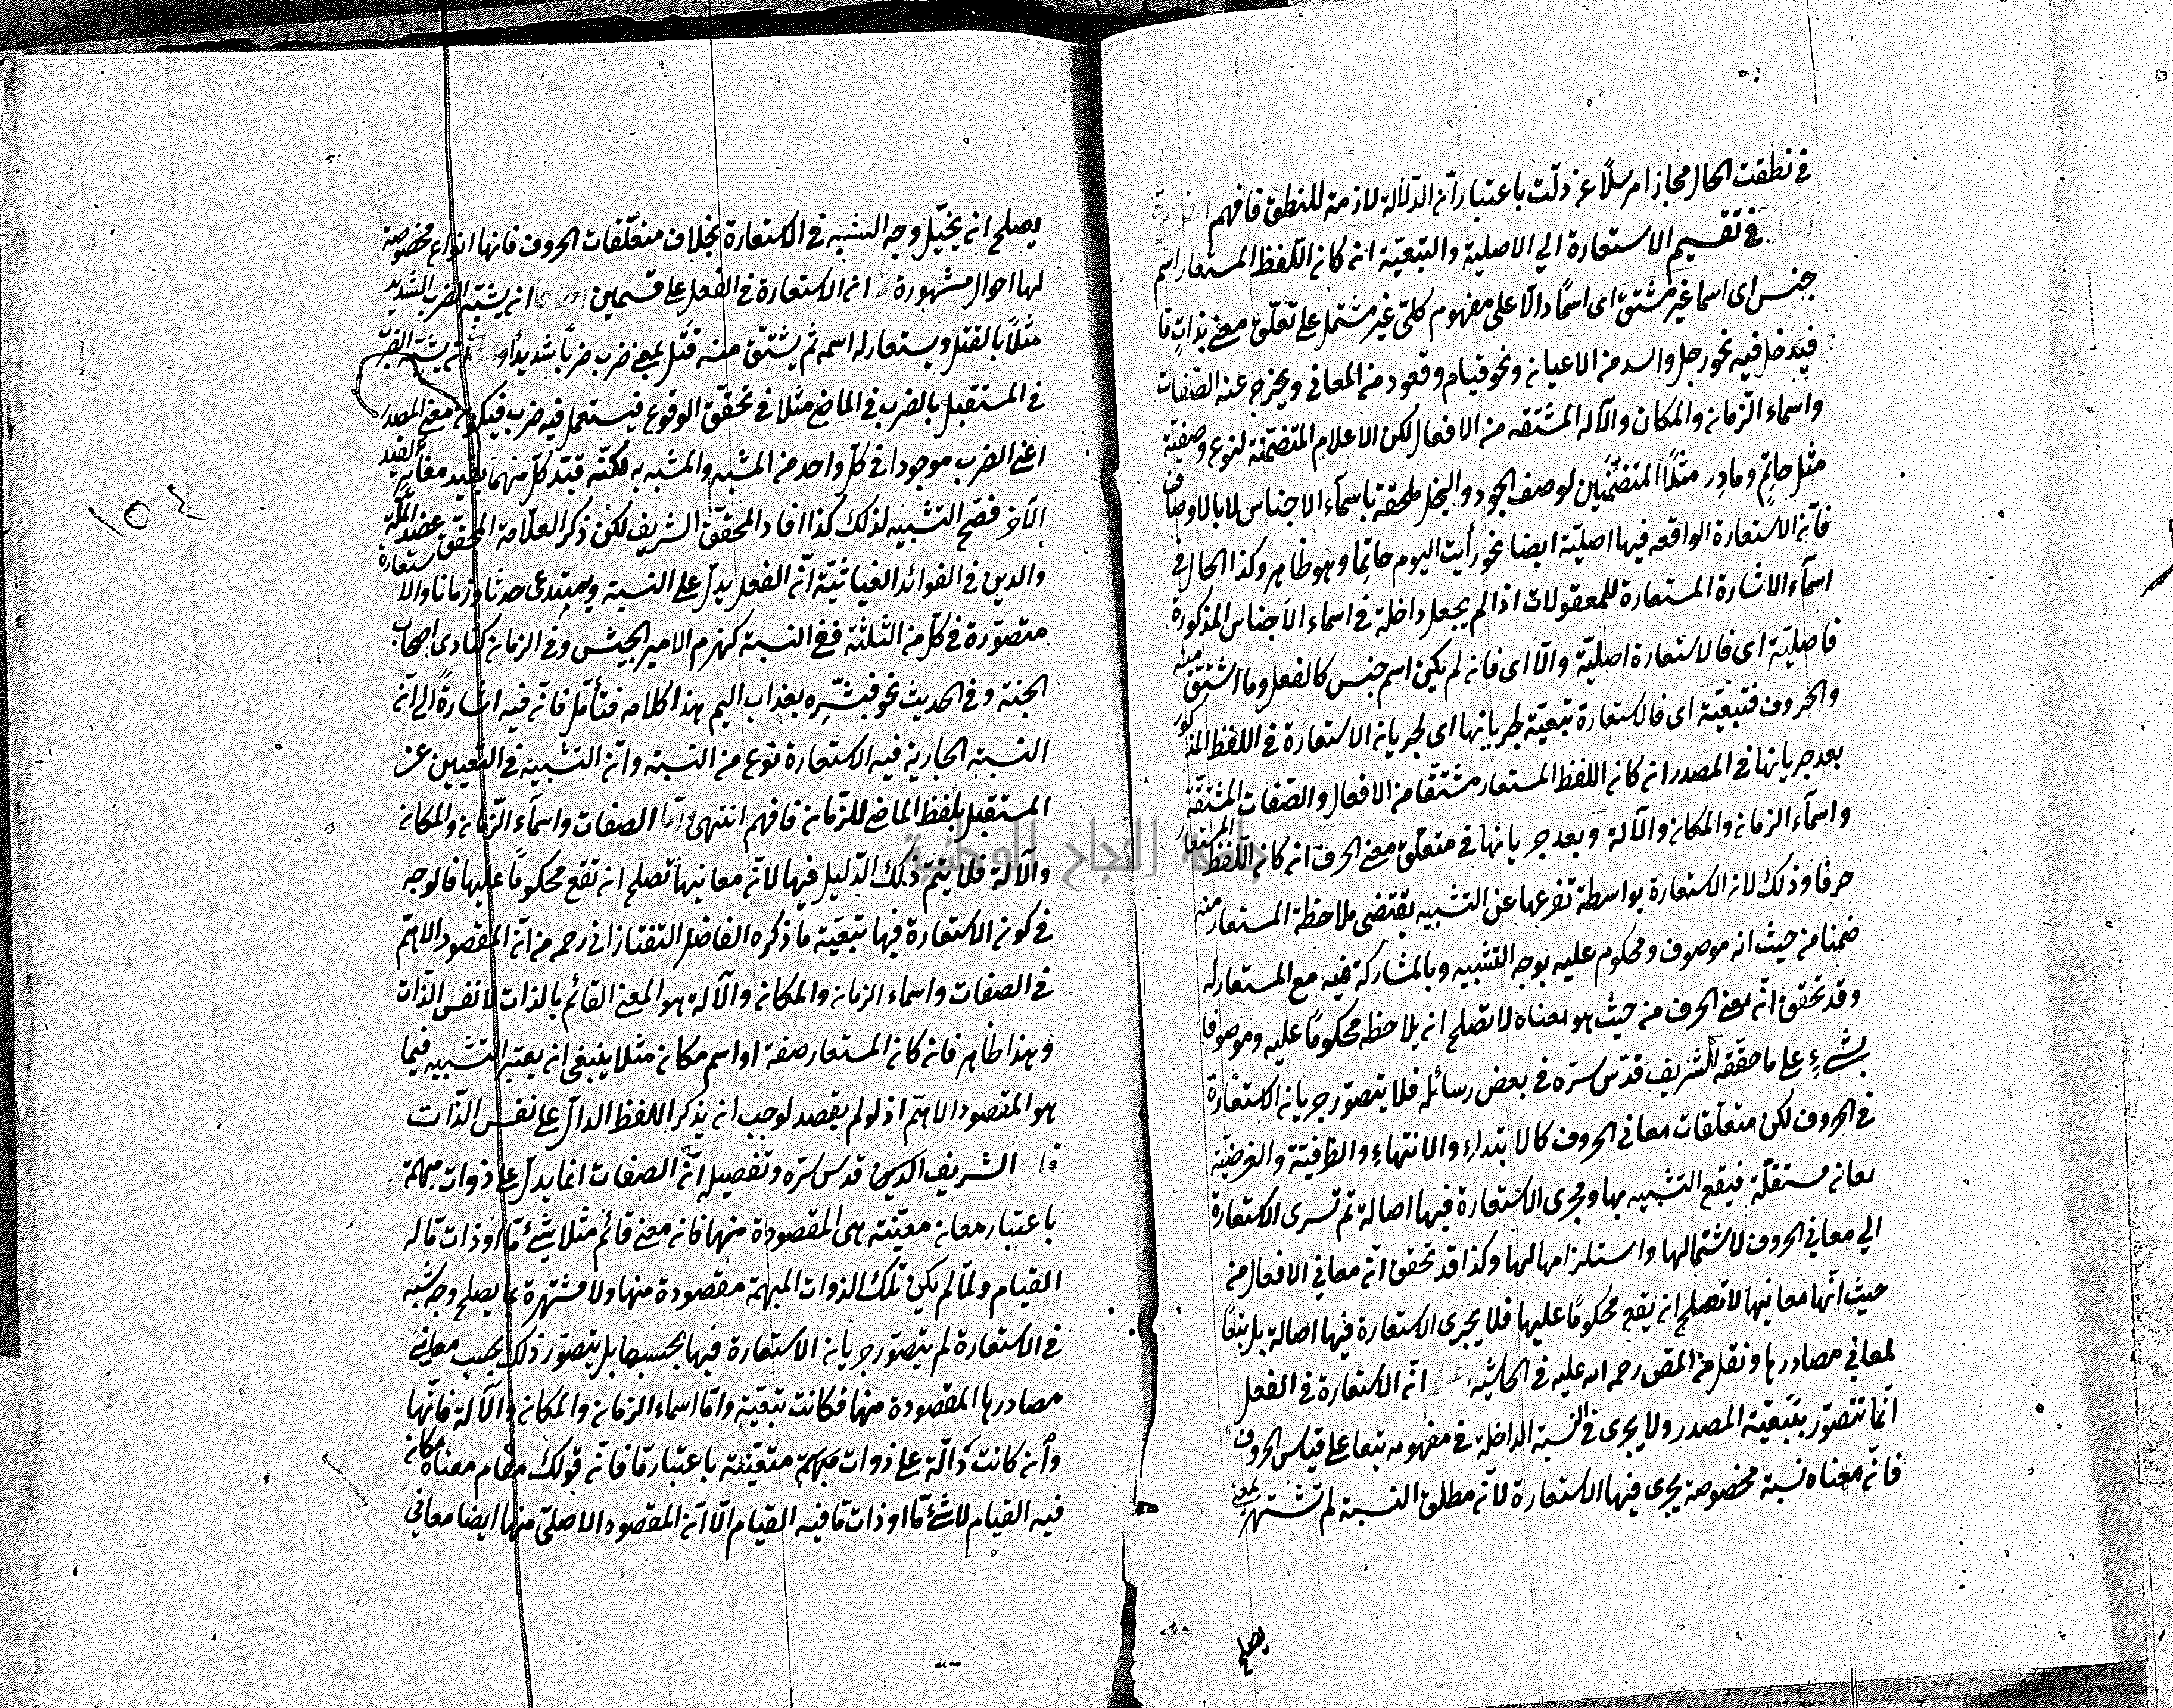 في نطقت الحال مجازا مرسلاً عن دلّت باعتبار انّ الدلالة لازمة للنطق فافهم
في تقسيم الاستعارة الي الاصلية والتبعيّة ان كان اللفظ المستعار اسم
جنس اى اسما غير مشتق اى اسمًا دالّا على مفهوم كلّي غير مشتمل على تعلّق معنى بذات ما
فيدخل فيه نحو رجل واسد من الاعيان ونحو قيام وقعود من المعاني ويخرج عنه الصّفات
واسماء الزّمان والمكان والآله المشتقه من الافعال لكن الاعلام المتضمّنة لنوع وصفيّة
مثل حاتم ومادر مثلا المتضمّنين لوصف الجود والبخل ملحقة باسماء الاجناس لا بالاوصاف
فانّ الاستعارة الواقعه فيها اصليّة ايضا نحو رأيت اليوم حاتِمًا وهو ظاهر وكذا الحال في
اسماء الاشارة المستعارة للمعقولات اذا لم يجعل داخلة في اسماء الاجناس المذكورة
فاصليّة اى فالاستعارة اصليّة والّا اى فان لم يكن اسم جنس كالفعل وما اشتق منه
والحروف فتبعيّة اى فالاستعارة تبعيّة لجريانها اى لجريان الاستعارة في اللفظ المذكور
بعد جريانها في المصدر ان كان اللفظ المستعار مشتقّا من الافعال والصّفات المشتقّة
واسماء الزمان والمكان والآلة وبعد جريانها في متعلّق معنى الحرف ان كان اللّفظ المستعار
حرفا وذلك لان الاستعارة بواسطة تفرعها عن التشبيه يقتضى ملاحظة المستعار منه
ضمنا من حيث انه موصوف ومحكوم عليه بوجه التشبيه وبالمشاركة فيه مع المستعار له
وقد تحقق انّ معنى الحرف من حيث هو معناه لا تصلح ان يلاحظ محكومًا عليه وموصوفا
بشيءٍ على ما حقّقه الشريف قدّس سرّه في بعض رسائله فلا يتصوّر جريان الاستعارة
في الحروف لكن متعلّقات معاني الحروف كالابتداء والانتهاء والظرفيّة والغرضيّة
معان مستقلّة فيقع التشبيه بها ومجرى الاستعارة فيها اصالة ثم تسرى الاستعارة
الي معاني الحروف لاشتمالها واستلزامها لها وكذا قد تحقق انّ معاني الافعال من
حيث انّها معانيها لا تصلح ان يقع محكومًا عليها فلا يجرى الاستعارة فيها اصالة بل تبعًا
لمعاني مصادرها ونقل من المص رحمه الله عليه في الحاشية انّ الاستعارة في الفعل
انّما تتصوّر بتبعيّة المصدر ولا يجرى في النسبة الداخلة في مفهومه تبعا على قياس الحروف
فانّ معناه نسبة مخصوصة يجرى فيها الاستعارة لانّ مطلق النسبة لم تشتهر بمعنى
يصلح
يصلح ان يخيّل وجه الشبه في الاستعارة بخلاف متعلّقات الحروف فانها انواع مخصوصة
لها احوال مشهورة ان الاستعارة في الفعل على قسمين ان يشبّه الضرب الشديد
مثلًا بالقتل ويستعار له اسمه ثم يشتق منه قتل بمعنى ضرب ضربًا شديدًا ان يشبّه الضرب
في المستقبل بالضرب في الماضى مثلا في تحقّق الوقوع فيستعمل فيه ضرب فيكون معنى المصدر
اعنى الضرب موجودا في كل واحد من المشبه والمشبه به لكنّه قيّد كلّ منهما بقيد مغاير لقيد
الآخر فصحّ التشبيه لذلك كذا افاد المحقّق الشريف لكن ذكر العلّامة المحقق عضد الملّة
والدين في الفوائد الغياثيّة انّ الفعل يدلّ على النسبة ويستدعى حدثا وزمانا والاستعارة
متصوّرة في كلّ من الثلثة ففي النسبة كهزم الامير الجيش وفي الزمان كنادى اصحاب
الجنة وفي الحديث نحو فبشّره بعذاب اليم هذا كلامه فتأمّل فانّ فيه اشارةً الى انّ
النسبة الجارية فيه الاستعارة نوع من النسبة وانّ التشبيه في التعيين عن
المستقبل بلفظ الماضى للزّمان فافهم انتهى وامّا الصفات واسماء الزّمان والمكان
والآلة فلا يتمّ ذلك الدّليل فيها لانّ معانيها تصلح ان تقع محكومًا عليها فالوجه
في كون الاستعارة فيها تبعيّة ما ذكره الفاضل التفتازاني رحمه من انّ المقصود الاهمّ
في الصفات واسماء الزمان والمكان والآلة هو المعنى القائم بالذات لا نفس الذّات
وهذا ظاهر فان كان المستعار صفة او اسم مكان مثلا ينبغى ان يعتبر التشبيه فيما
هو المقصود الاهمّ اذ لو لم يقصد لوجب ان يذكر اللفظ الدالّ على نفس الذّات
قال الشريف قدس سرّه وتفصيله انّ الصفات انما يدلّ على ذوات مبهمة
باعتبار معان معيّنة هى المقصودة منها فان معنى قائم مثلا شئ ما او ذات ما له
القيام ولمّا لم يكن تلك الذوات المبهمة مقصودة منها ولا مشتهرة بما يصلح وجه شبه
في الاستعارة لم يتصوّر جريان الاستعارة فيها بحسبها بل يتصوّر ذلك بحسب معاني
مصادرها المقصودة منها فكانت تبعيّة وامّا اسماء الزمان والمكان والآلة فانّها
وان كانت دالّة على ذوات مبهمة متعيّنة باعتبار ما فانّ قولك مقام معناه مكان
فيه القيام لا شئ ما او ذات ما فيه القيام الّا انّ المقصود الاصلىّ منها ايضا معاني
١٥٤
جامعة النجاح الوطنية